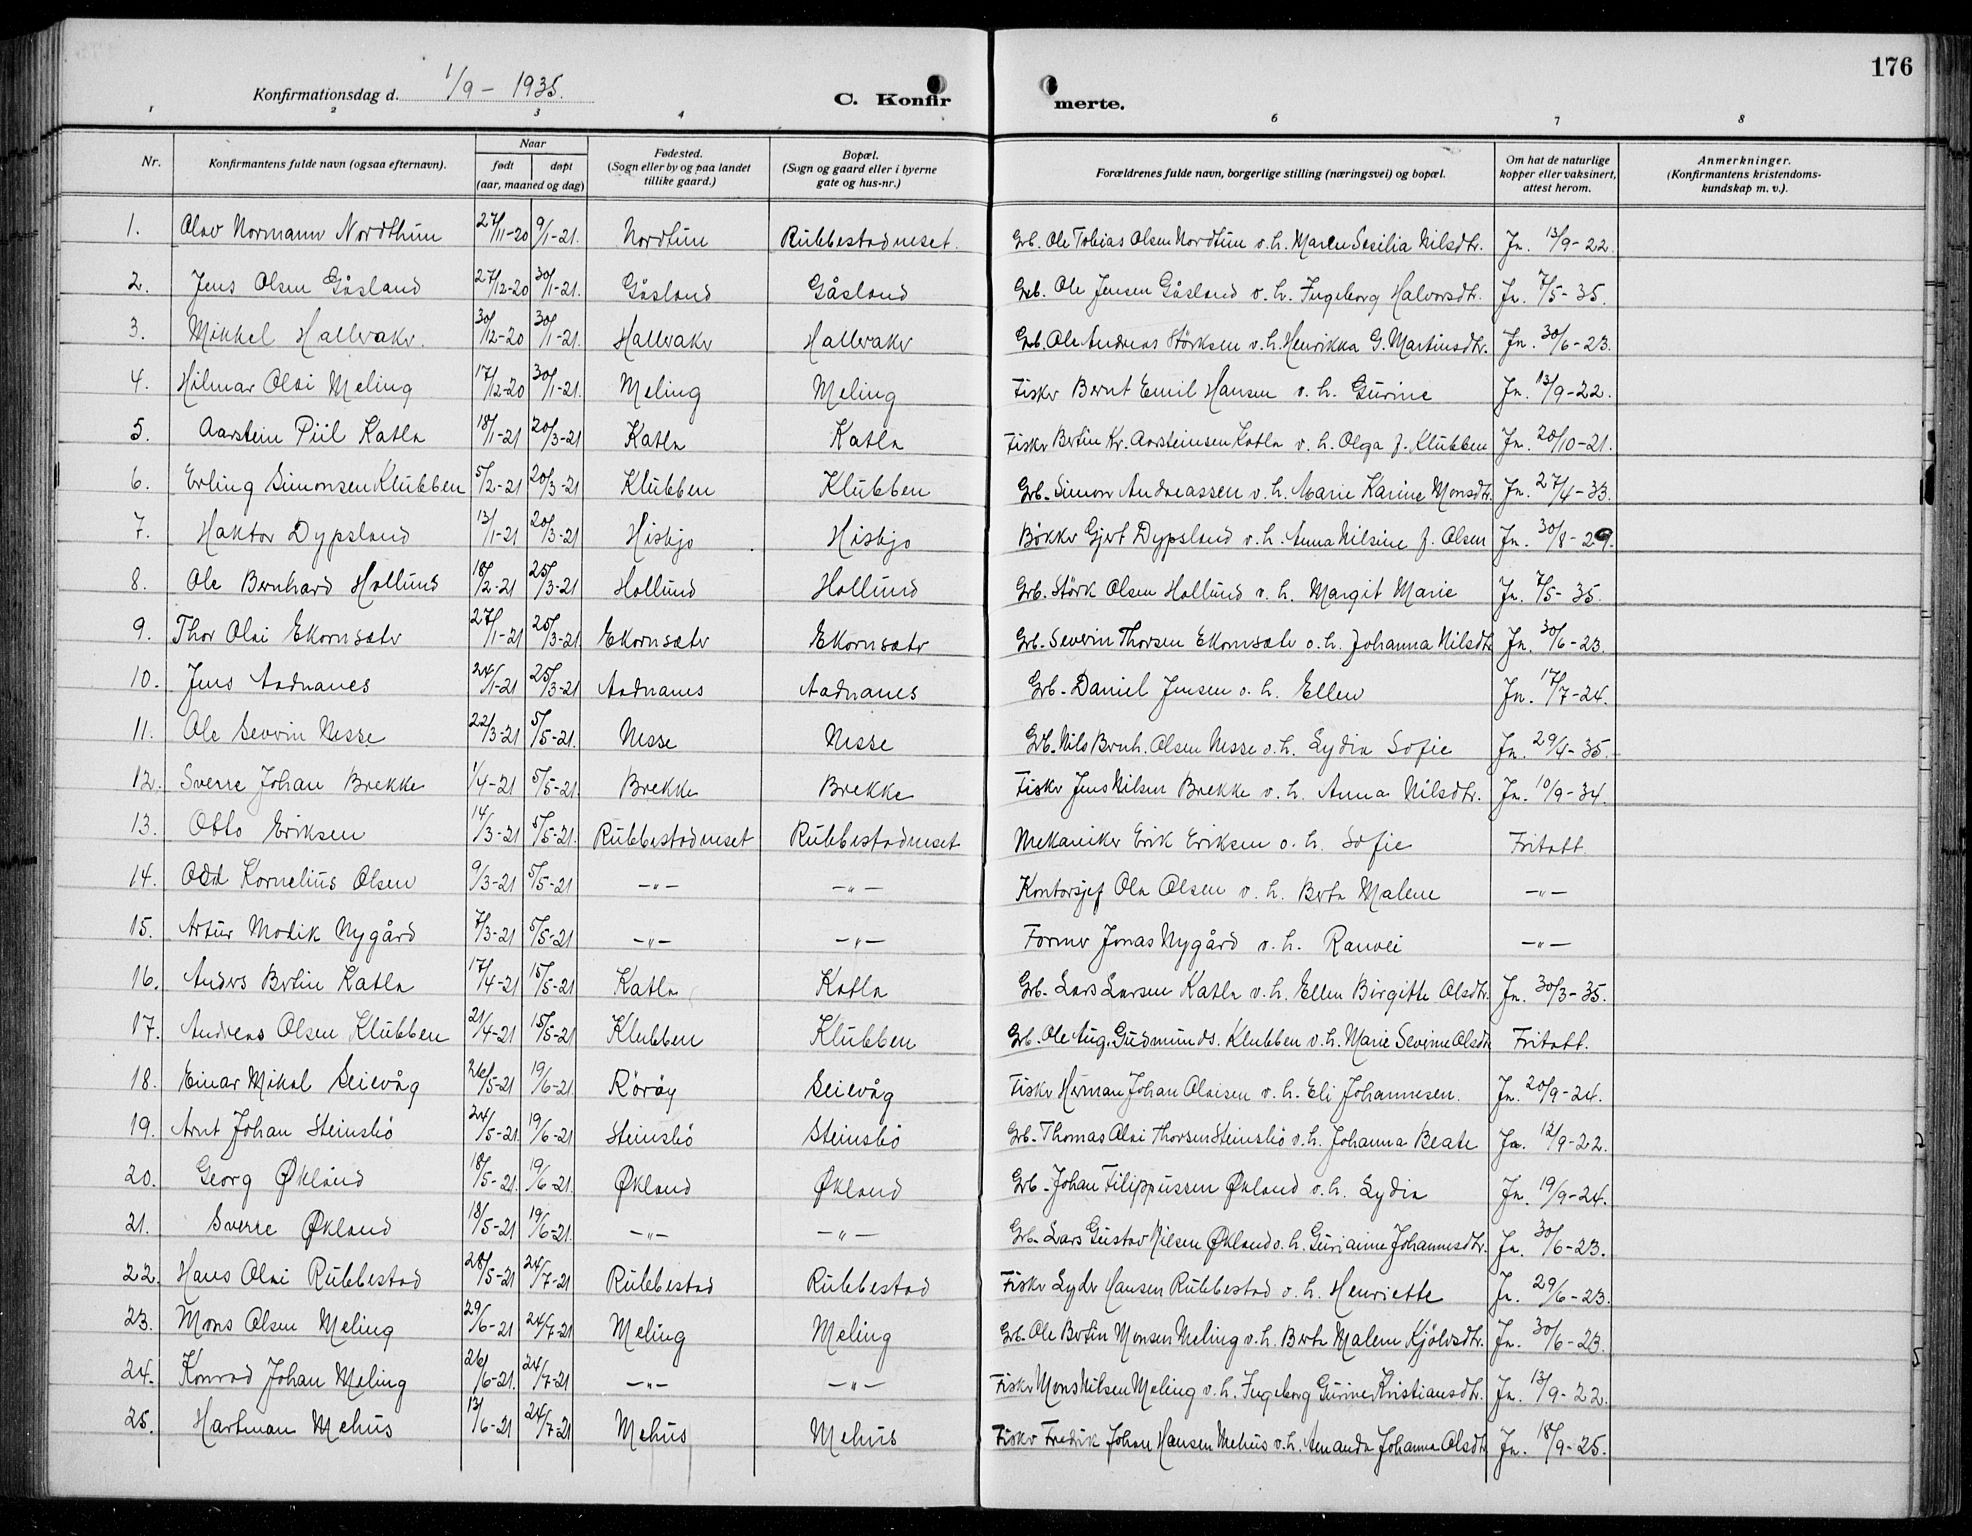 176
Konfirmationsdag d. 1/9 - 1935.
C. Konfirmerte.
1 2 3 4 6 7 8
Nr. Konfirmantens fulde navn (ogsaa efternavn). Naar født døpt (aar, maaned og dag) Fødested. (Sogn eller by og paa landet tillike gaard.) Bopæl. (Sogn og gaard eller i byerne gate og hus-nr.) Forældrenes fulde navn, borgerlige stilling (næringsvei) og bopæl. Om hat de naturlige kopper eller vaksinert, attest herom. Anmerkninger. (Konfirmantens kristendoms-kundskap m. v.).
1. Olav Normann Nordthun 27/11-20 9/1-21. Nordtun Rubbestadneset. Grb. Ole Tobias Olsen Nordtun o. h. Maren Sesilia Nilsdtr. Ja. 13/9-22.
2. Jens Olsen Gåsland 27/12-20 30/1-21. Gåsland Gåsland Grb. Ole Jensen Gåsland o. h. Ingeborg Halvorsdtr. Ja. 7/5-35.
3. Mikkel Halleraker. 30/12-20 30/1-21. Halleraker Halleraker Grb. Ole Andreas Størksen o. h. Henrikka G. Martinsdtr. Ja. 30/6-23.
4. Hilmar Olai Meling 17/12-20 30/1-21. Meling Meling Fisker Bernt Emil Hansen o. h. Gurine Ja. 13/9-22.
5. Aarstein Piil Katla 18/1-21 20/3-21 Katla Katla Fisker Bertin Kr. Aarsteinsen Katla o. h. Olga f. Klubben Ja. 20/10-21.
6. Erling Simonsen Klubben 5/2-21 20/3-21 Klubben Klubben Grb. Simon Andreassen o. h. Marie Karine Monsdtr. Ja. 27/4-33.
7. Haktor Dypsland 13/1-21 20/3-21 Hisbjo Hisbjo Bøkker Gjert Dypsland o. h. Anna Nilsine f. Olsen Ja. 30/8-29.
8. Ole Bernhard Hollund 18/2-21 25/3-21 Hollund Hollund Grb. Störk Olsen Hollund o. h. Margit Marie Ja. 7/5-35.
9. Thor Olai Ekornsæter 27/1-21 25/3-21 Ekornsæter Ekornsæter Grb. Severin Thorsen Ekornsæter o. h. Johanna Nilsdtr Ja. 30/6-23.
10. Jens Aadnanes 24/1-21 25/3-21 Aadnanes Aadnanes Grb. Daniel Jensen o. h. Ellen Ja. 17/7-24.
11. Ole Severin Nesse 22/3-21 5/5-21. Nesse Nesse Grb. Nils Bernh. Olsen Nesse o. h. Lydia Sofie Ja. 29/4-35.
12. Sverre Johan Brekke 1/4-21 5/5-21. Brekke Brekke Fisker Jens Nilsen Brekke o. h. Anna Nilsdtr. Ja. 10/9-34.
13. Otto Eriksen 14/3-21 5/5-21. Rubbestadneset Rubbestadneset Mekaniker Erik Eriksen o. h. Sofie Fritatt.
14. Odd Kornelius Olsen 9/3-21 5/5-21 —„— —„— Kontorsjef Ola Olsen o. h. Berta Malene —„—
15. Artur Modik Nygård 7/3-21 5/5-21 —„— —„— Former Jonas Nygård o. h. Ranvei —„—
16. Anders Bertin Katla 17/4-21 15/5-21 Katla Katla Grb. Lars Larsen Katla o. h. Ellen Birgitte Olsdtr. Ja. 30/3-35.
17. Andreas Olsen Klubben 21/4-21 15/5-21 Klubben Klubben Grb. Ole Aug. Gudmunds. Klubben o. h. Marie Severine Olsdtr Fritatt.
18. Einar Mikal Seievåg 26/5-21 19/6-21. Röröy Seievåg Fisker Herman Johan Olaisen o. h. Eli Johannesen. Ja. 20/9-24.
19. Arnt Johan Steinsbö 24/5-21. 19/6-21 Steinsbö Steinsbö Grb. Thomas Olai Thorsen Steinsbö o. h. Johanna Beate Ja. 12/9-22.
20. Georg Økland 18/5-21. 19/6-21. Økland Økland Grb. Johan Filippussen Økland o. h. Lydia Ja. 19/9-24.
21. Sverre Økland 18/5-21 19/6-21. —„— —„— Grb. Lars Gustav Nilsen Økland o. h. Gurianne Johannesdtr. Ja. 30/6-23.
22. Hans Olai Rubbestad 28/5-21 24/7-21 Rubbestad Rubbestad Fisker Lyder Hansen Rubbestad o. h. Henriette Ja. 29/6-23.
23. Mons Olsen Meling 29/6-21 24/7-21 Meling Meling Grb. Ole Bertin Monsen Meling o. h. Berte Malene Kjölvsdtr. Ja. 30/6-23.
24. Konrad Johan Meling 26/6-21. 24/7-21 —„— —„— Fisker Mons Nilsen Meling o. h. Ingeborg Gurine Kristiansdtr. Ja. 13/9-22.
25. Hartman Mehus 13/6-21 24/7-21 Mehus Mehus Fisker Fredrik Johan Hansen Mehus o. h. Amanda Johanna Olsdtr Ja. 18/9-25.